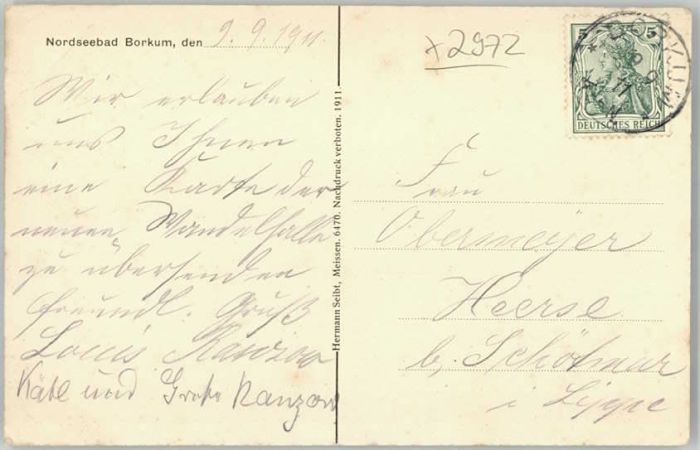 Nordseebad Borkum, den 9.9.1911.
Wir erlauben
uns Ihnen
eine Karte der
neuen Wandelhalle
zu übersenden
freundl. Gruß
Louis Ranzow
Käte und Grete Ranzow
Hermann Seibt, Meissen. 6470. Nachdruck verboten. 1911
x2972
5 5
DEUTSCHES REICH
BORKUM
Frau
Obermeyer
Heerse
b. Schötmar
i Lippe